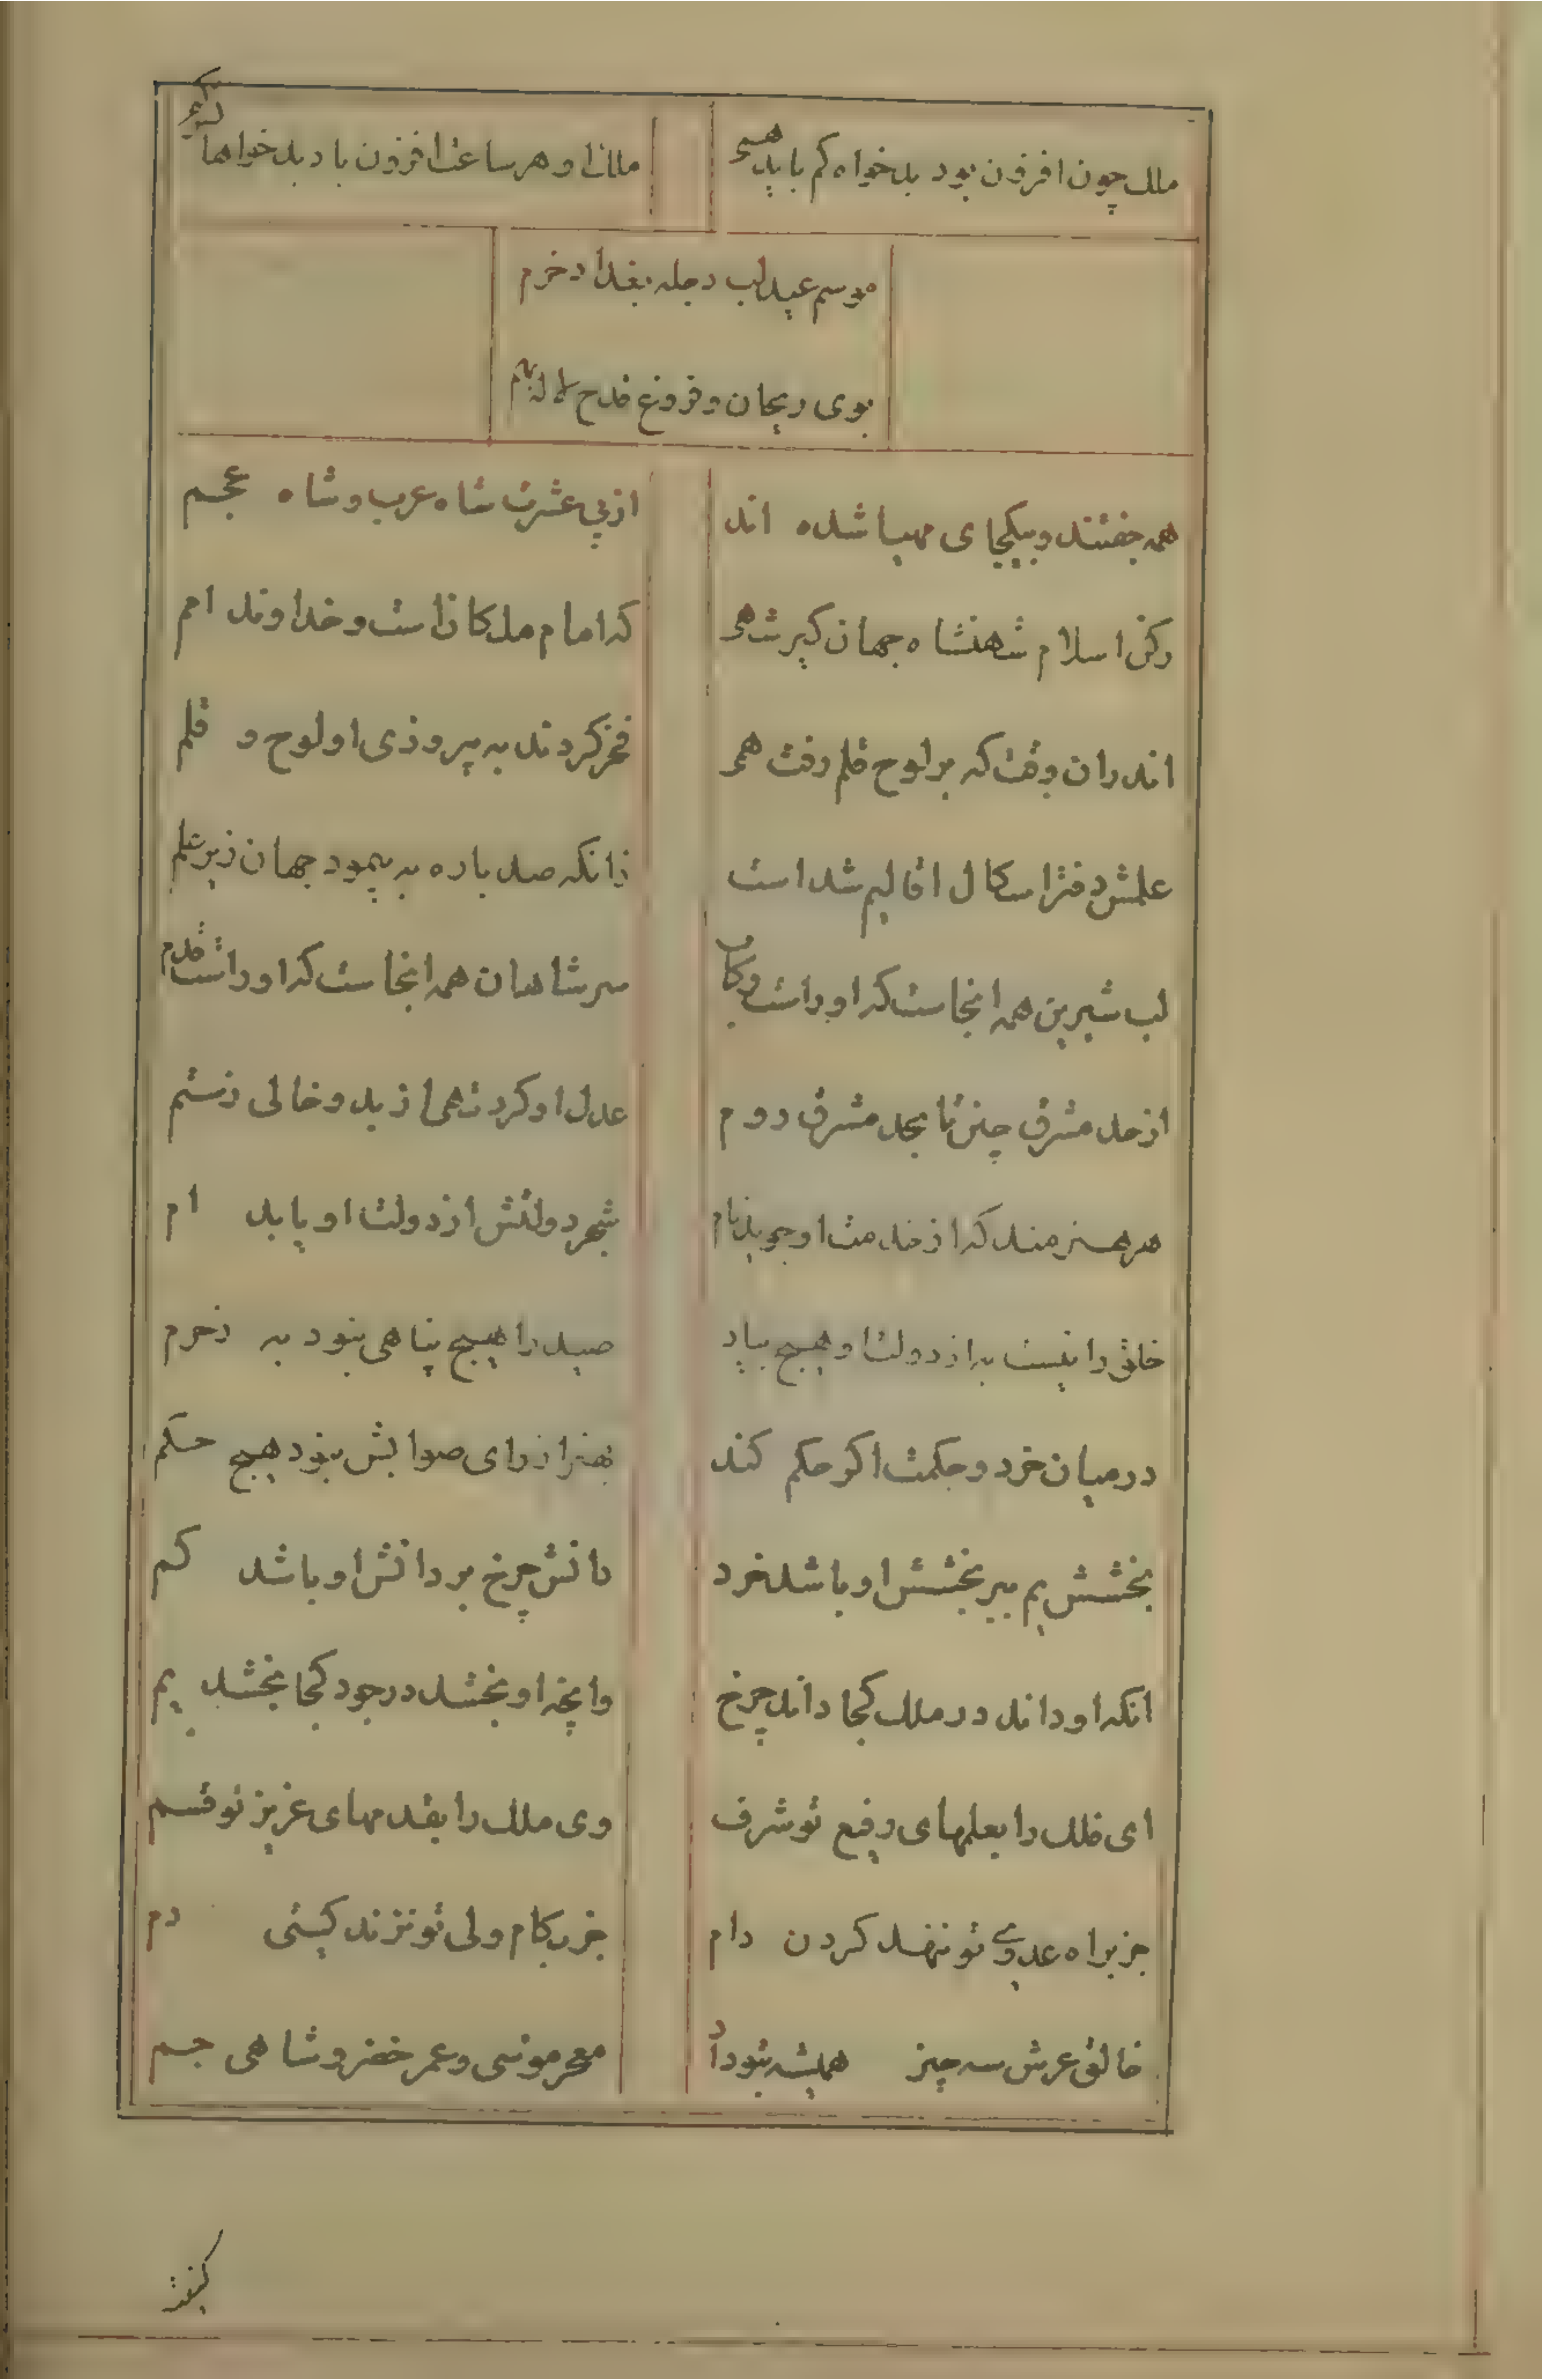 ملک چون افزون بود بدخواه کم باید همی
ملک او هر ساعت افزون باد بدخواهانش کم
موسم عید لب دجله بغداد خرم
بوی ریحان و فروغ قدح لاله بهم
همه جفتند و بیکجای مهیا شده اند
از پی عشرت شاه عرب و شاه عجم
رکن اسلام شهنشاه جهان گیر شهی
که امام ملکان است و خداوند امم
اندران وقت که بر لوح قلم رفت همی
فخر کردند به پیروزی او لوح و قلم
علمش دفتر اسکال اقالیم شداست
زانکه صد باره به پیمود جهان زیر علم
لب شیرین همه انجاست که او راست رکاب
سر شاهان همه انجاست که او راست قدم
از حد مشرق چین تا بحد مشرق روم
عدل او کرد تهی از بد و خالی ز ستم
هر هنرمند که از خدمت او جوید نام
شجر دولتش از دولت او یابد
خلق را نیست به از دولت او هیچ پناه
صید را هیچ پناهی نبود به ز حرم
در میان خرد و حکمت اگر حکم کند
بهتر از رای صوابش نبود هیچ حکم
بخشش یم بر بخشش او باشد خرد
دانش چرخ بر دانش او باشد کم
انکه او داند در ملک کجا داند چرخ
وانچه او بخشد در جود کجا بخشد یم
ای فلک را بعلمهای رفیع تو شرف
وی ملک را بقدمهای عزیز تو قسم
جز براه عدوی تو ننهد گردون دام
جز بکام ولی تو نزند گیتی دم
خالق عرش سه چیز همیشه بتو داد
معجز موسی و عمر خضر و شاهی جم